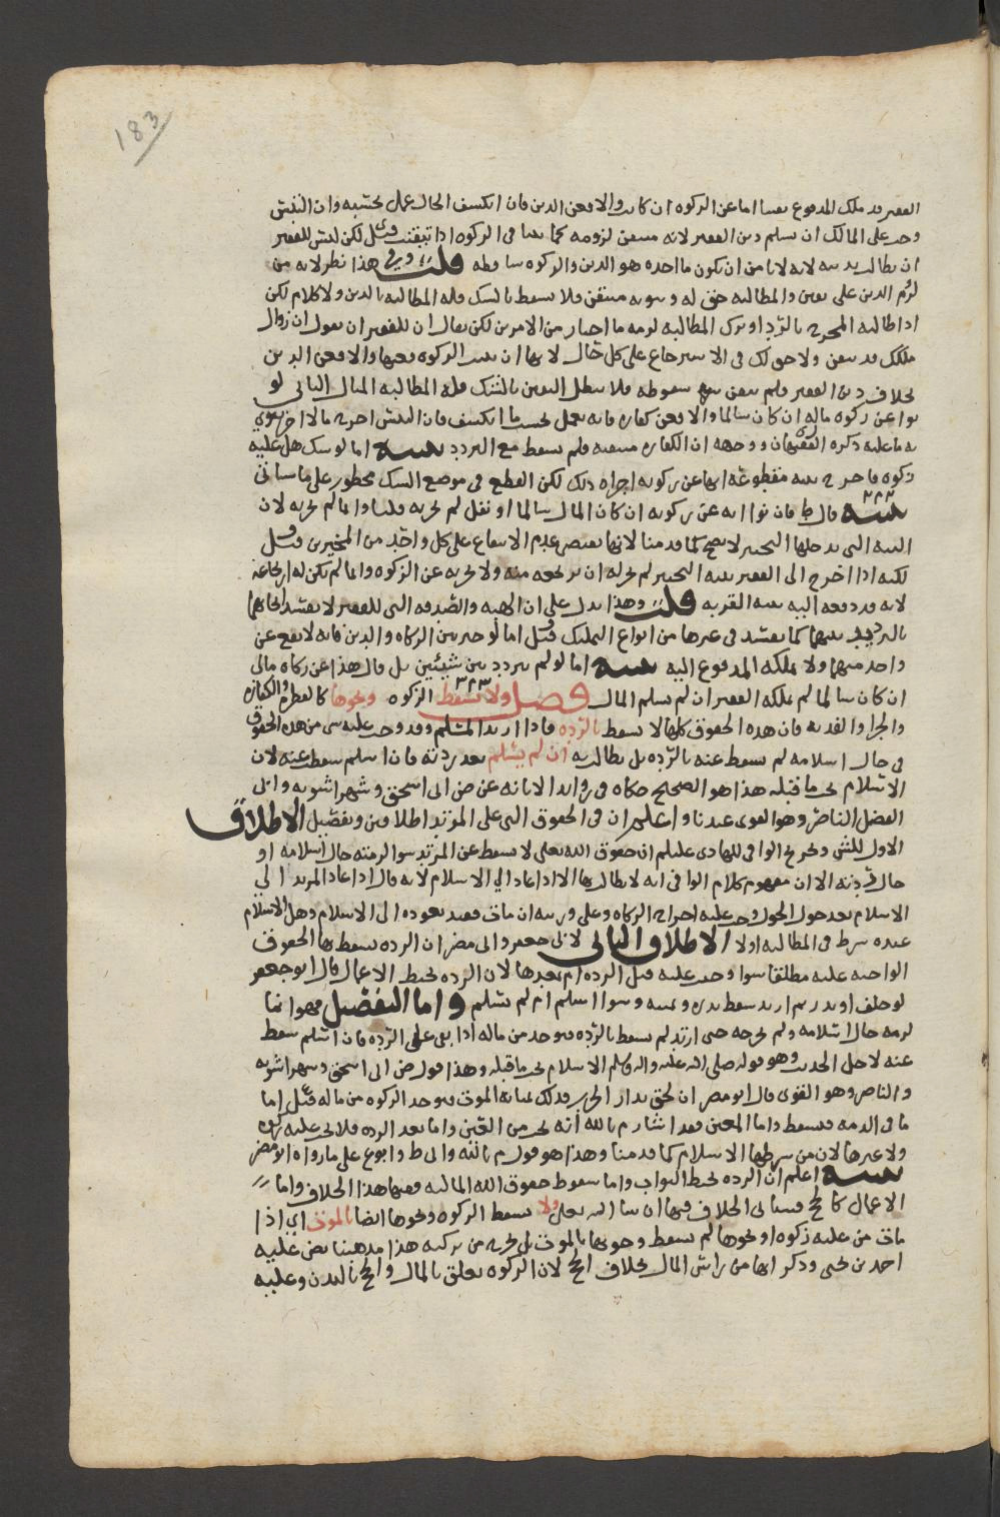 183
الفقير قد ملك المدفوع يقينا اما عن الزكوة ان كانت والا فعن الدين فان انكشف الحال عمل بحسبه وان التبس
وجب على المالك ان يسلم دين الفقير لانه متيقن لزومه كما يقينا في الزكوة اذا تيقنت وقيل لكن ليس للفقير
ان يطالب بدينه لانه لا يامن ان تكون ما اخذه هو الدين والزكوة ساقطه قلت وفي هذا نظر لانه من
لزم الدين على يقين والمطالبه حق له وثبوته متيقن فلا يسقط بالشك فله المطالبه بالدين ولا كلام لكن
اذا طالبه المخرج بالرد او ترك المطالبه لزمه ما اختار من الامرين لكن يقال ان للفقير ان يقول ان زوال
ملكك قد تيقن ولا حق لك في الاسترجاع على كل حال لانها ان بقيت الزكوة فعنها والا فعن الدين
بخلاف دين الفقير فلم يتيقن سقوطه فلا يبطل اليقين بالشك فله المطالبه المثال الثاني لو
نوا عن زكوة ماله ان كان سالما والا فعن كفاره فانه يعمل بحسب ما انكشف فان التبس اخرج مالا اخر ينوي
به ما عليه ذكره الفقيهان ووجهه ان الكفاره متيقنه فلم تسقط مع التردد تنبيه اما لو شك هل عليه
زكوة فاخرج بنيه مقطوعة انها عن زكوته اجزاه ذلك لكن القطع في موضع الشك محظور على ما سياتي
تنبيه قال ط فان نوا انه عن زكوته ان كان المال سالما او نفل لم يجزه قلنا وانما لم يجزه لان
النيه التي يدخلها التخيير لا تصح كما قدمنا لانها تقتضي عدم الايقاع على كل واحد من المخيرين وقيل
لكنه اذا اخرج الى الفقير بنيه التخيير لم يجز له ان يرتجعه منه ولا يجزيه عن الزكوة وانما لم يكن له ارتجاعه
لانه قد دفعه اليه بنيه القربه قلت وهذا يدل على ان الهبه والصدقه التي للفقير لا يفسد
بالترديد بينهما كما يفسد في غيرها من انواع التمليك قيل اما لو خير بين الزكاه والدين فانه لا يقع عن
واحد منهما ولا يملكه المدفوع اليه تنبيه اما لو لم يردد بين شيئين بل قال هذا عن زكاه مالي
ان كان سالما لم يملكه الفقير ان لم يسلم المال فصل ولا تسقط الزكوة ونحوها كالفطره والكفاره
والجزا والفديه فان هذه الحقوق كلها لا تسقط بالرده فاذا ارتد المسلم وقد وجب عليه شي من هذه الحقوق
في حال اسلامه لم يسقط عنه بالرده بل يطالب به ان لم يسلم بعد ردته فان اسلم سقط عنه لان
الاسلام يجب ما قبله هذا هو الصحيح حكاه في زوايد الابانه عن ض الى اسحق وشهراشويه وابي
الفضل الناصر وهو القوي عندنا واعلم ان في الحقوق التي على المرتد اطلاقين وتفصيل الاطلاق
الاول للش وتخريج الوافي للهادي عليلم ان حقوق الله تعلى لا تسقط عن المرتد سوا لزمته حال اسلامه او
حال ردته الا ان مفهوم كلام الوافي انه لا يطالب بها الا اذا عاد الى الاسلام لانه قال اذا عاد المرتد الى
الاسلام بعد حول الحول وجب عليه اخراج الزكاه وعلى ورثته ان مات فعند بعوده الى الاسلام وهل الاسلام
عنده شرط في المطالبه اولا الاطلاق الثاني لابي جعفر وابي مضر ان الرده تسقط بها الحقوق
الواجبه عليه مطلقا سوا وجبت عليه قبل الرده ام بعدها لان الرده تحبط الاعمال قال ابو جعفر
لو حلف او نذر ثم ارتد سقط نذره ويمينه وسوا اسلم ام لم يسلم واما التفصيل فهو انما
لزمه حال اسلامه ولم يخرجه حتى ارتد لم يسقط بالرده فيوخذ من ماله اذا بقي على الرده فان اسلم سقط
عنه لاجل الحديث وهو قوله صلى الله عليه واله وسلم الاسلام يجب ما قبله وهذا قول ض ابى اسحق وشهراشويه
والناصر وهو القوي قال ابو مضر ان لحق بدار الحرب فذلك بمثابه الموت فيوخذ الزكوة من ماله قيل اما
ما في الذمه فيسقط واما المعين فقد اشار م بالله انه يجب من العين واما بعد الرده فلا يجب عليه زكوة
ولا غيرها لان من شرطها الاسلام كما قدمنا وهذا هو قول م بالله وابي ط وابو ع على ما رواه ابو مضر
تنبيه اعلم ان الرده تحبط الثواب واما سقوط حقوق الله الماليه ففيها هذا الخلاف واما
الاعمال كالحج فسياتي الخلاف فيها ان شا الله تعلى ولا تسقط الزكوة ونحوها ايضا بالموت اي اذا
مات من عليه زكوة او نحوها لم يسقط وجوبها بالموت بل يخرج من تركته هذا مذهبنا نص عليه
احمد بن يحيى وذكر انها من راس المال بخلاف الحج لان الزكوة تعلق بالمال والحج بالبدن وعليه